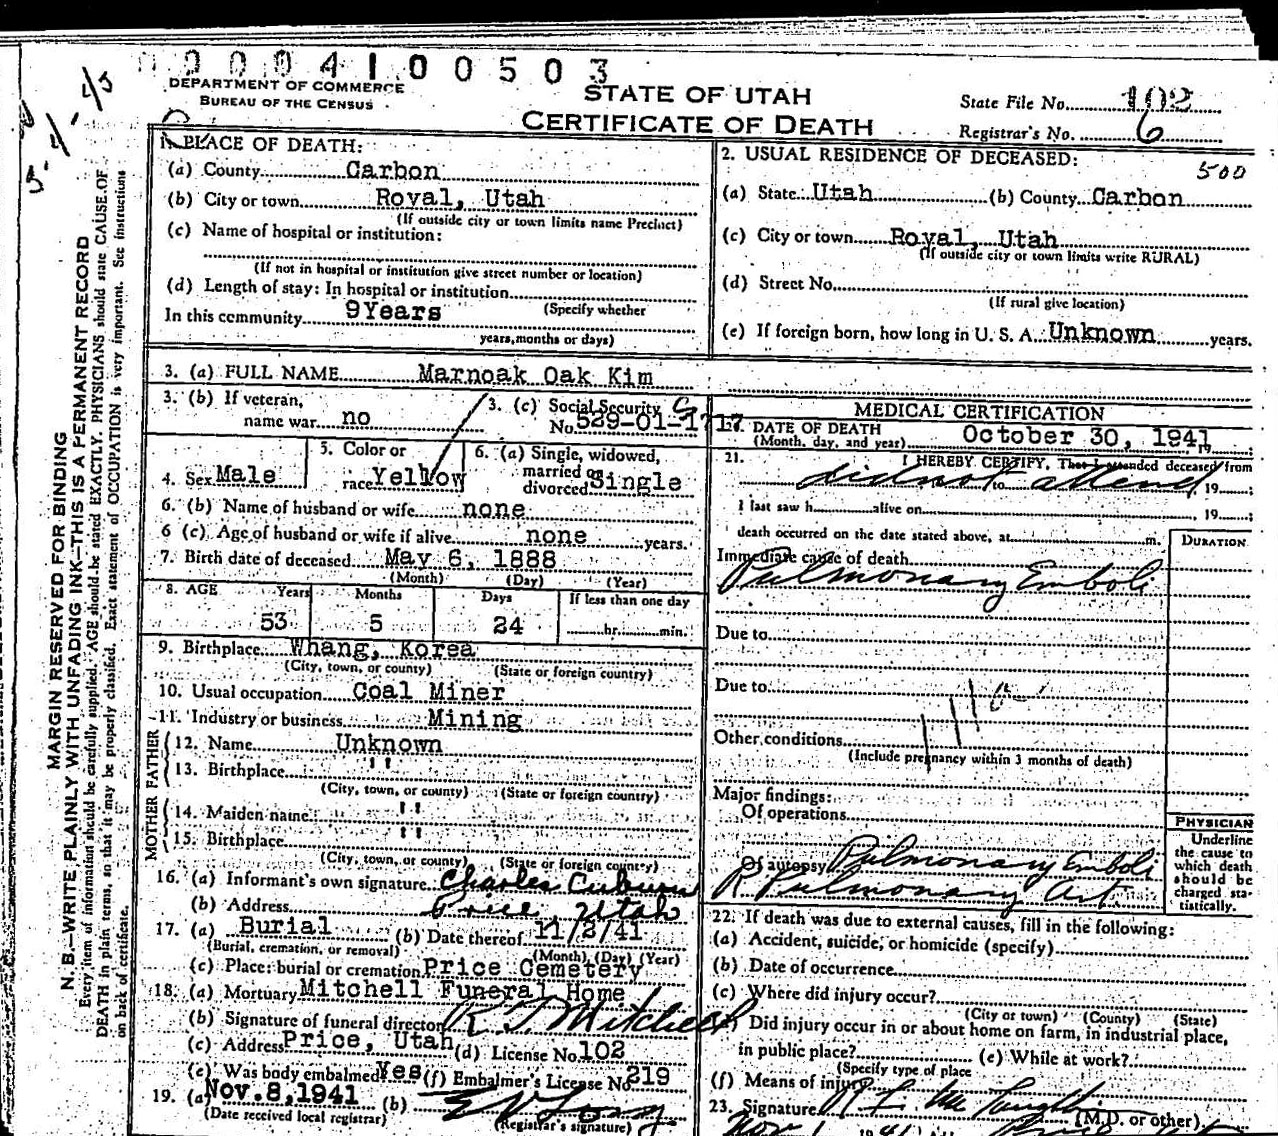 000410 0503
DEPARTMENT OF COMMERCE
BUREAU OF THE CENSUS
STATE OF UTAH
CERTIFICATE OF DEATH
State File No. 102
Registrar's No. 6
MARGIN RESERVED FOR BINDING
N. B.—WRITE PLAINLY WITH UNFADING INK—THIS IS A PERMANENT RECORD
Every item of information should be carefully supplied. AGE should be stated EXACTLY. PHYSICIANS should state CAUSE OF
DEATH in plain terms, so that it may be properly classified. Exact statement of OCCUPATION is very important. See instructions
on back of certificate.
1. PLACE OF DEATH:
(a) County Carbon
(b) City or town Royal, Utah
(If outside city or town limits name Precinct)
(c) Name of hospital or institution:
(If not in hospital or institution give street number or location)
(d) Length of stay: In hospital or institution
(Specify whether
In this community 9Years
years, months or days)
2. USUAL RESIDENCE OF DECEASED:
500
(a) State Utah (b) County Carbon
(c) City or town Royal, Utah
(If outside city or town limits write RURAL)
(d) Street No.
(If rural give location)
(e) If foreign born, how long in U. S. A. Unknown years.
3. (a) FULL NAME Marnoak Oak Kim
3. (b) If veteran, name war no
3. (c) Social Security No. 529-01-1717
4. Sex Male
5. Color or race Yellow
6. (a) Single, widowed, married or divorced Single
6. (b) Name of husband or wife none
6 (c) Age of husband or wife if alive none years.
7. Birth date of deceased May 6, 1888
(Month) (Day) (Year)
8. AGE Years Months Days If less than one day
53 5 24 hr. min.
9. Birthplace Whang, Korea
(City, town, or county) (State or foreign country)
10. Usual occupation Coal Miner
11. Industry or business Mining
FATHER
12. Name Unknown
13. Birthplace "
(City, town, or county) (State or foreign country)
MOTHER
14. Maiden name "
15. Birthplace "
(City, town, or county) (State or foreign country)
16. (a) Informant's own signature Charles
(b) Address Price, Utah
17. (a) Burial (b) Date thereof 11/2/41
(Burial, cremation, or removal) (Month) (Day) (Year)
(c) Place: burial or cremation Price Cemetery
18. (a) Mortuary Mitchell Funeral Home
(b) Signature of funeral director R T Mitchell
(c) Address Price, Utah (d) License No. 102
(e) Was body embalmed? Yes (f) Embalmer's License No. 219
19. (a) Nov. 8, 1941 (b)
(Date received local registrar) (Registrar's signature)
MEDICAL CERTIFICATION
20. DATE OF DEATH
(Month, day, and year) October 30, 1941 19
21. I HEREBY CERTIFY, That I attended deceased from
did not attend to , 19 ;
I last saw h alive on , 19 ;
death occurred on the date stated above, at m.
DURATION
Immediate cause of death
Pulmonary Emboli
Due to
Due to
Other conditions
(Include pregnancy within 3 months of death)
Major findings:
Of operations
Of autopsy Pulmonary Emboli
R Pulmonary Art.
PHYSICIAN
Underline
the cause to
which death
should be
charged sta-
tistically.
22. If death was due to external causes, fill in the following:
(a) Accident, suicide, or homicide (specify)
(b) Date of occurrence
(c) Where did injury occur?
(City or town) (County) (State)
(d) Did injury occur in or about home on farm, in industrial place,
in public place? (e) While at work?
(Specify type of place
(f) Means of injury
23. Signature (M.D. or other)
Nov 1